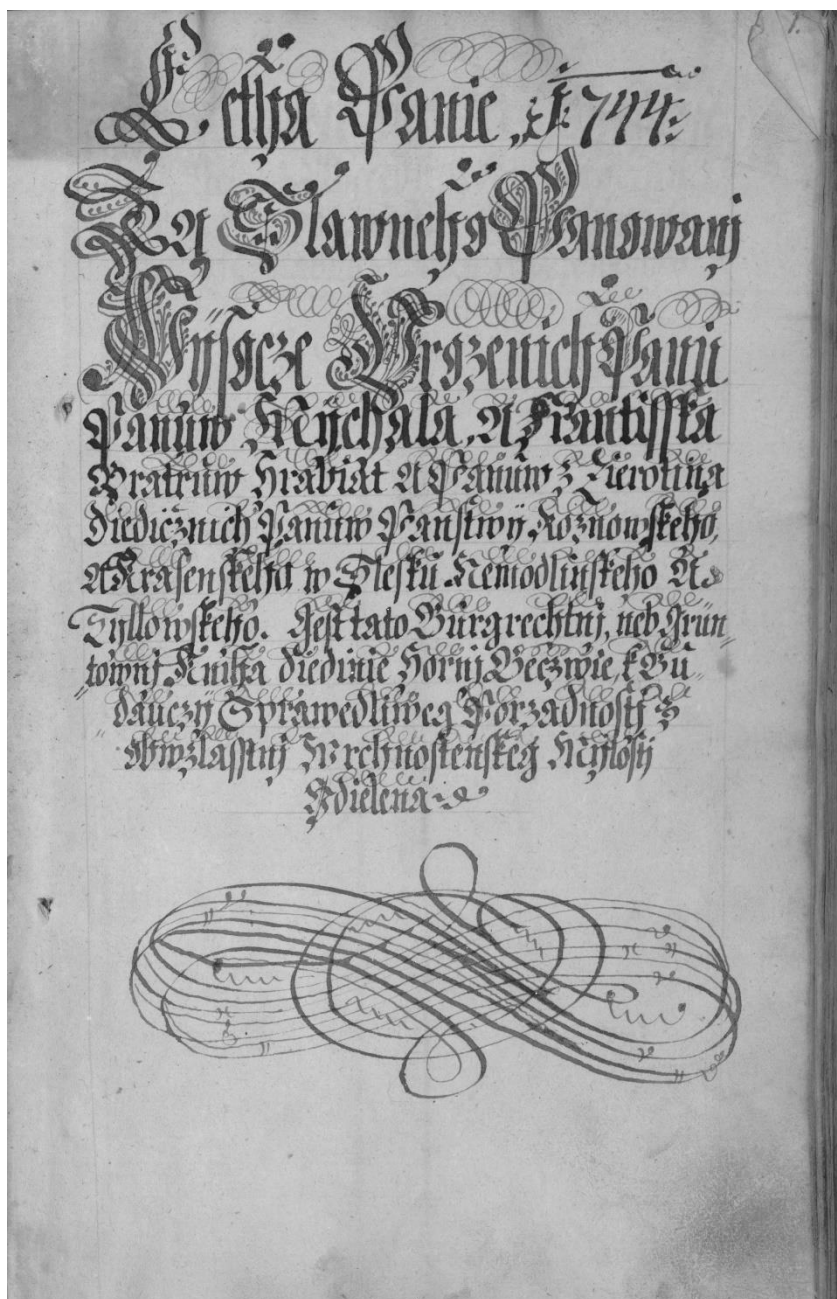 1.
Letha Panie, 1744:
Za Slawneho Panowanj
Wÿsocze Urozenich Panu
Panuw Mÿchala, A Frantisska
Bratruw Hrabiat A Panuw z Zierotina
diedicznich Panuw Panstwÿ Roznowskeho,
A Krasenskeho w Slesku Nemodlinskeho A
Tÿllowskeho. Jest tato Burgrechtnj, neb Grun„
„townj Kniha diedinie Hornj Beczwie, k Bu„
„dauczÿ Sprawedliweg Porzadnosti z
obwzlasstnj Wrchnostenskeg Mÿlosti
Zdielena